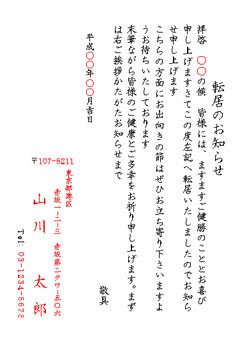 転居のお知らせ
拝啓　〇〇の候　皆様には、ますますご健勝のこととお喜び
申し上げますさてこの度左記へ転居いたしましたのでお知ら
せ申し上げます
こちらの方面にお出向きの節はぜひお立ち寄り下さいますよ
うお待ちいたしております
末筆ながら皆様のご健康とご多幸をお祈り申し上げます。まず
は右ご挨拶かたがたお知らせまで
敬具
平成〇〇年〇〇月吉日
〒107-6211
東京都港区
赤坂一-二-三　赤坂第二タワー五〇六
山川　太郎
Tel: 03-1234-5678